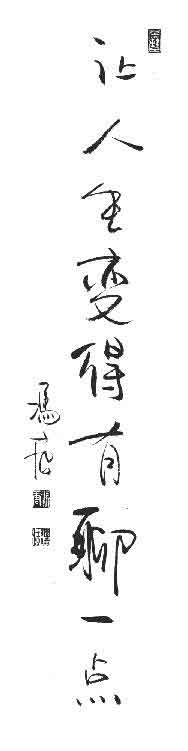 让人生变得有聊一点